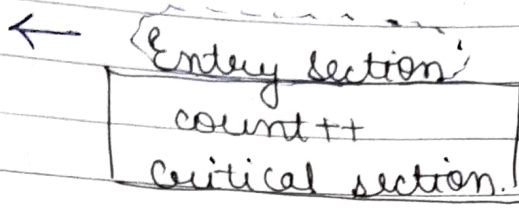 Entry section
count++
critical section.